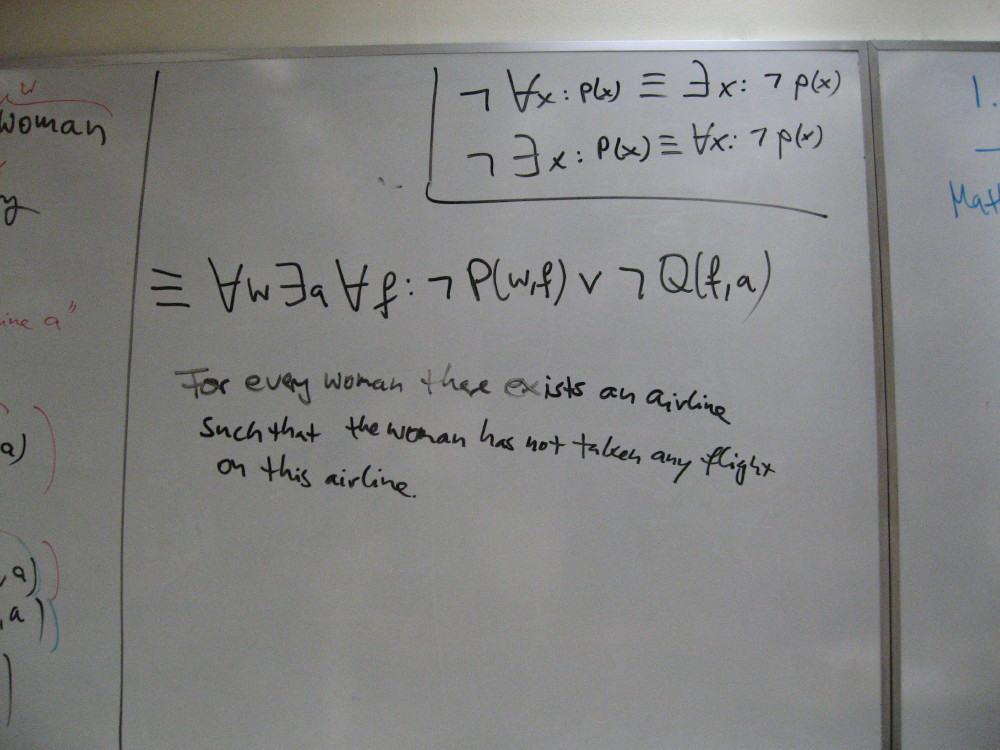 w
woman
ine a"
a)
, a)
, a)
)
¬ ∀x : P(x) ≡ ∃x : ¬ p(x)
¬ ∃x : P(x) ≡ ∀x : ¬ p(x)
≡ ∀w ∃a ∀f : ¬ P(w,f) ∨ ¬ Q(f,a)
For every woman there exists an airline
such that the woman has not taken any flight
on this airline.
1.
Mat